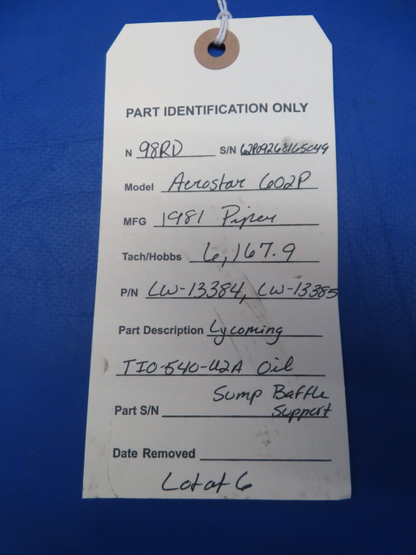 PART IDENTIFICATION ONLY
N 98RD S/N 62P09268165049
Model Aerostar 602P
MFG 1981 Piper
Tach/Hobbs 6,167.9
P/N LW-13384, LW-13385
Part Description Lycoming
TIO-540-U2A Oil
Sump Baffle
Part S/N Support
Date Removed
Lot of 6